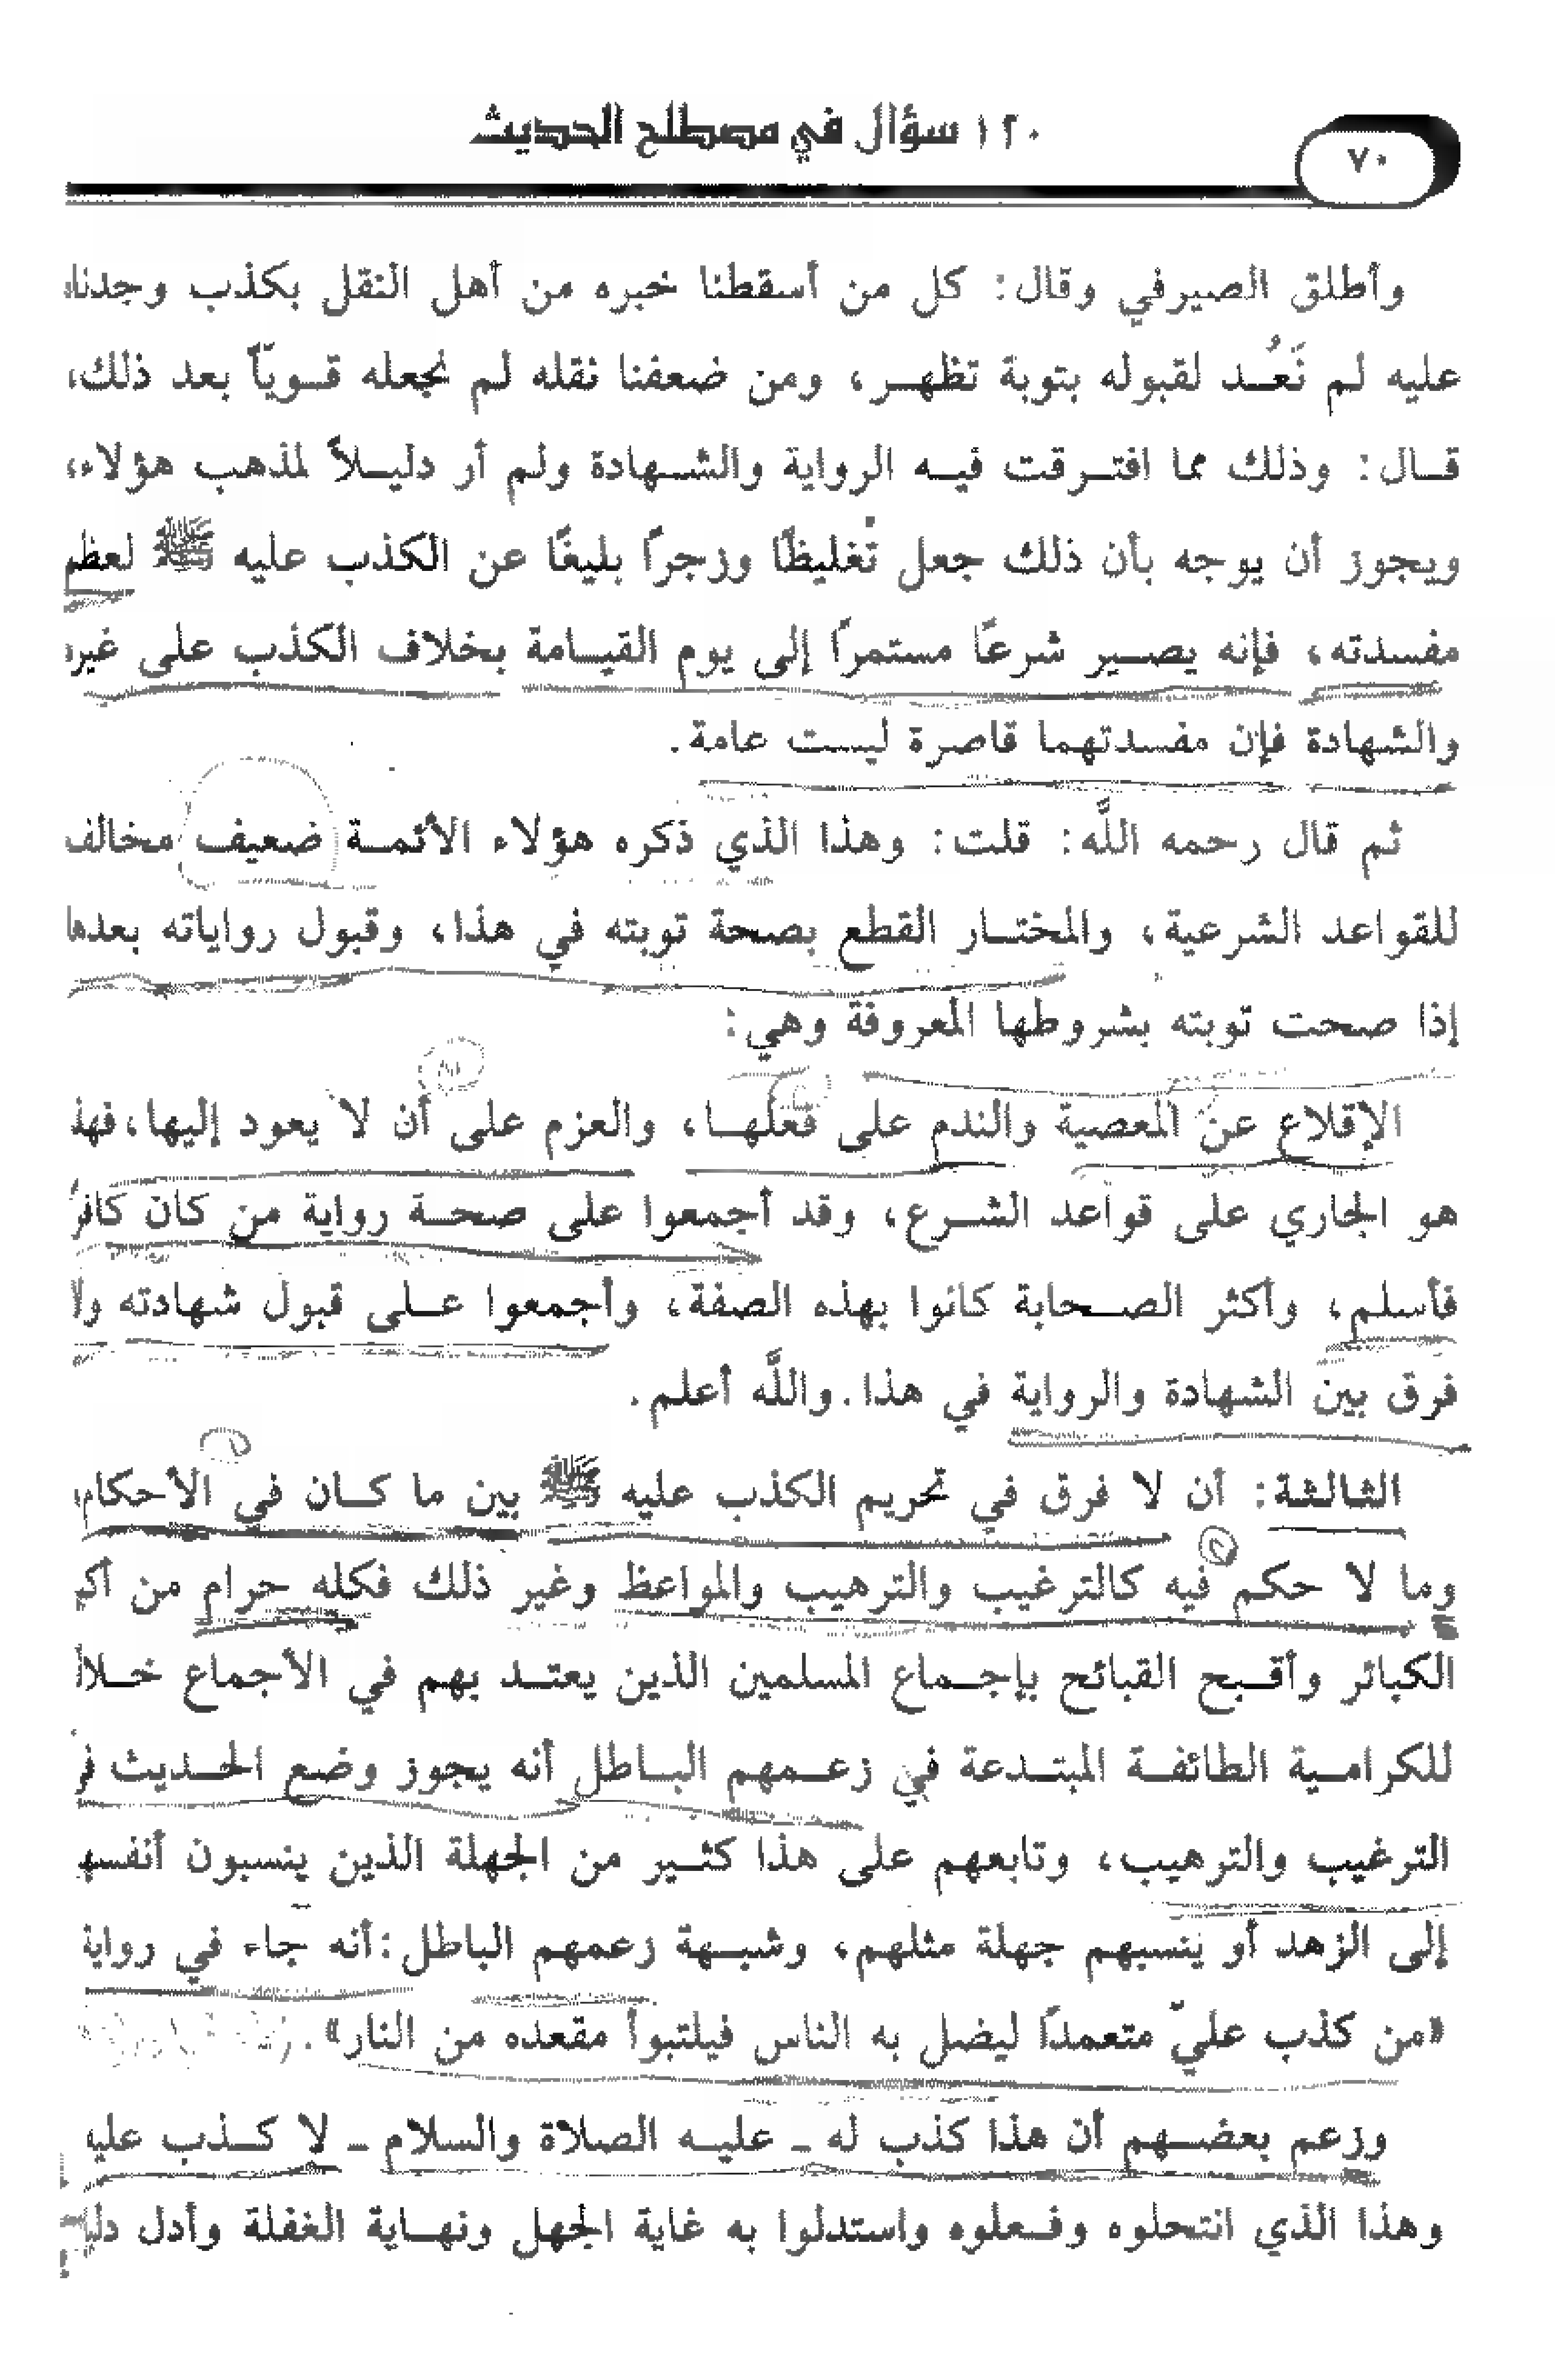 ١٢٠ سؤال في مصطلح الحديث
٧٠
وأطلق الصيرفي وقال: كل من أسقطنا خبره من أهل النقل بكذب وجدناه
عليه لم نَعُـد لقبوله بتوبة تظهـر، ومن ضعفنا نقله لم نجعله قـويّاً بعد ذلك،
قـال: وذلك مما افتـرقت فيـه الرواية والشـهادة ولم أر دليـلاً لمذهب هؤلاء،
ويجوز أن يوجه بأن ذلك جعل تغليظًا وزجرًا بليغًا عن الكذب عليه ﷺ لعظم
مفسدته، فإنه يصـير شرعًا مستمرًا إلى يوم القيـامة بخلاف الكذب على غيره
والشهادة فإن مفسدتهما قاصرة ليست عامة.
ثم قال رحمه اللَّه: قلت: وهذا الذي ذكره هؤلاء الأئمـة ضعيف مخالف
للقواعد الشرعية، والمختـار القطع بصحة توبته في هذا، وقبول رواياته بعدها
إذا صحت توبته بشروطها المعروفة وهي:
الإقلاع عن المعصية والندم على فعلهـا، والعزم على أن لا يعود إليها،فهذ
هو الجاري على قواعد الشـرع، وقد أجمعوا على صحـة رواية من كان كافرً
فأسلم، وأكثر الصـحابة كانوا بهذه الصفة، وأجمعوا عـلى قبول شهادته ولا
فرق بين الشهادة والرواية في هذا.واللَّه أعلم.
الثالثة: أن لا فرق في تحريم الكذب عليه ﷺ بين ما كـان في الأحكام
وما لا حكم فيه كالترغيب والترهيب والمواعظ وغير ذلك فكله حرام من
الكبائر وأقـبح القبائح بإجـماع المسلمين الذين يعتـد بهم في الأجماع خـلاا
للكرامـية الطائفـة المبتـدعة في زعـمهم البـاطل أنه يجوز وضع الحـديث
الترغيب والترهيب، وتابعهم على هذا كثـير من الجهلة الذين ينسبون أنفسه
إلى الزهد أو ينسبهم جهلة مثلهم، وشبـهة زعمهم الباطل:أنه جاء في رواية
«من كذب عليّ متعمدًا ليضل به الناس فيلتبوأ مقعده من النار».
وزعم بعضـهم أن هذا كذب له ـ عليـه الصلاة والسلام ـ لا كـذب عليه
وهذا الذي انتحلوه وفـعلوه واستدلوا به غاية الجهل ونهـاية الغفلة وأدل دليل